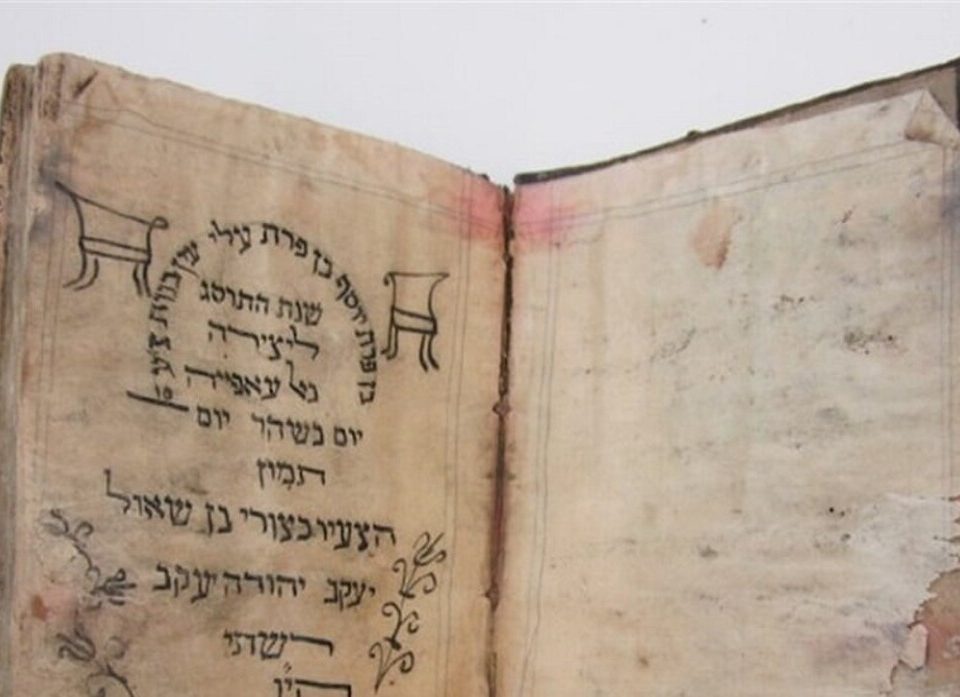 בן פרת יוסף בן פרת עילי עין בנות
שנת התרסג
ליצירה
עאפייה
יום בשהר יום
תמון
הצעיר בצורי בן שאול
יעקב יהודה יעקב
השני